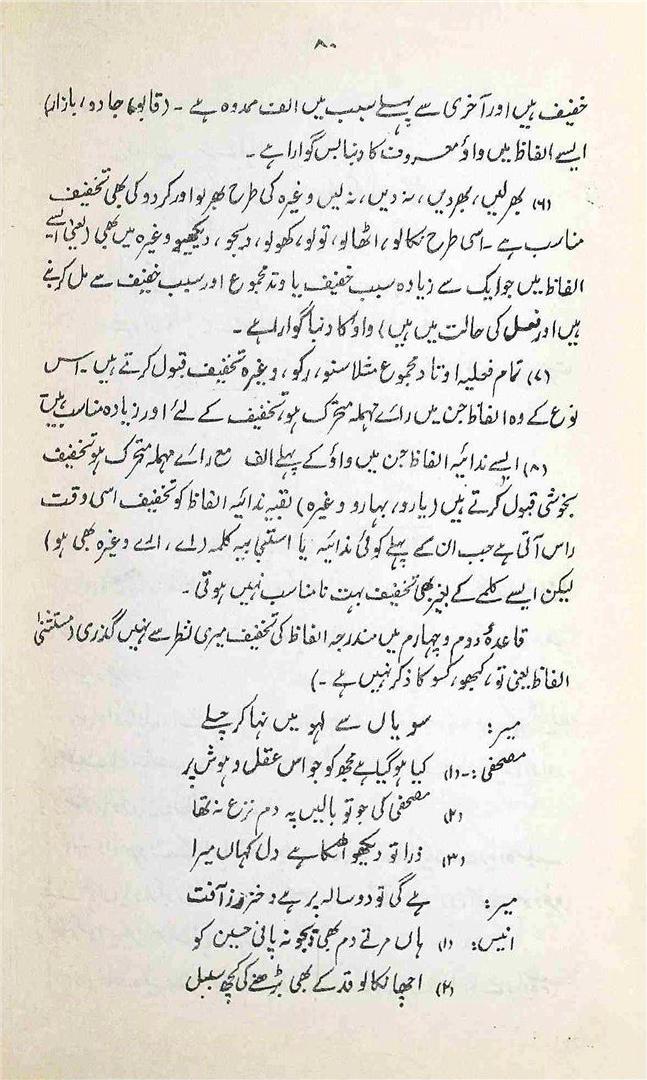 ۸۰
خفیف ہیں اور آخری سے پہلے سبب میں الف ممدوہ ہے ۔ (قابو، جادو، بازار)
ایسے الفاظ میں واؤ معروف کا دنبا بس گوارا ہے ۔
(۶) بھر لیں، بھر دیں، نہ دیں، نہ لیں وغیرہ کی طرح بھر لو اور کر دو کی بھی تخفیف
مناسب ہے ۔ اسی طرح نکالو، اٹھا لو، تولو، کھولو، دیجو، دیکھیو وغیرہ میں بھی (یعنی ایسے
الفاظ میں جو ایک سے زیادہ سبب خفیف یا وتد مجموع اور سبب خفیف سے مل کر بنے
ہیں اور فعل کی حالت میں ہیں) واؤ کا دنبا گوارا ہے ۔
(۷) تمام فعلیہ اوتاد مجموع مثلاً سنو، رکو، وغیرہ تخفیف قبول کرتے ہیں ۔ اس
نوع کے وہ الفاظ جن میں رائے مہملہ متحرک ہو، تخفیف کے لئے اور زیادہ مناسب ہیں
(۸) ایسے ندائیہ الفاظ جن میں واؤ کے پہلے الف مع رائے مہملہ متحرک ہو تخفیف
بخوشی قبول کرتے ہیں (یارو، بہارو وغیرہ) بقیہ ندائیہ الفاظ کو تخفیف اسی وقت
راس آتی ہے جب ان کے پہلے کوئی ندائیہ یا استعجابیہ کلمہ (اے، ارے وغیرہ بھی ہو)
لیکن ایسے کلمے کے بغیر بھی تخفیف بہت نامناسب نہیں ہوتی ۔
قاعدۂ دوم و چہارم میں مندرجہ الفاظ کی تخفیف میری نظر سے نہیں گذری (مستثنیٰ
الفاظ یعنی تو، کبھو، کسو کا ذکر نہیں ہے ۔)
میر: سو یاں سے لہو میں نہا کر چلے
مصحفی:۔ (۱) کیا ہو گیا ہے مجھ کو جو اس عقل و ہوش پر
(۲) مصحفی کی جو تو بالیں پہ دم نزع نہ تھا
(۳) ذرا تو دیکھو اٹکا ہے دل کہاں میرا
میر: ہے گی تو دو سالہ پر ہے دختر رز آفت
انیس: (۱) ہاں مرتے دم بھی دیجو نہ پانی حسین کو
(۲) اچھا نکالو قد کے بھی بڑھنے کی کچھ سبیل